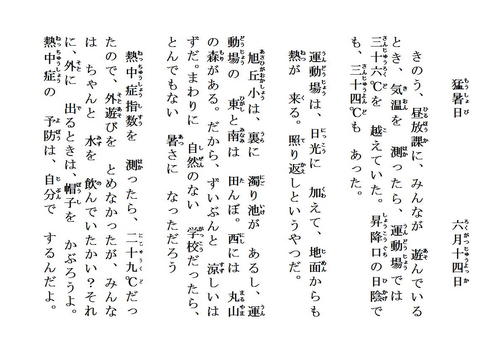 猛暑日　六月十四日
きのう、昼放課に、みんなが 遊んでいる
とき、気温を 測ったら、運動場では
三十六℃を 越えていた。昇降口の日陰で
も、三十四℃も あった。
運動場は、日光に 加えて、地面からも
熱が 来る。照り返しというやつだ。
旭丘小は、裏に 濁り池が あるし、運
動場の 東と南は 田んぼ。西には 丸山
の森がある。だから、ずいぶんと 涼しいは
ずだ。まわりに 自然のない 学校だったら、
とんでもない 暑さに なっただろう
熱中症指数を 測ったら、二十九℃だっ
たので、外遊びを とめなかったが、みんな
は ちゃんと 水を 飲んでいたかい？それ
に、外に 出るときは、帽子を かぶろうよ。
熱中症の 予防は、自分で するんだよ。